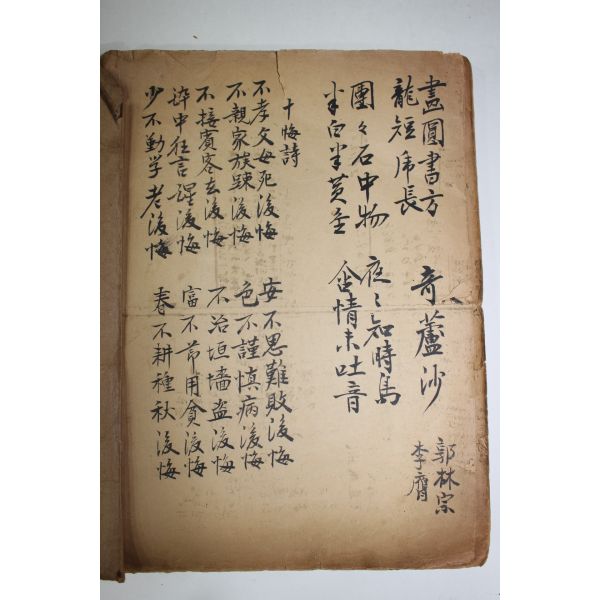 畵圓書方 奇蘆沙
龍短虎長
郭林宗
李膺
團々石中物 夜〻知時鳥
半白半黃金 含情未吐音
十悔詩
不孝父母死後悔 安不思難敗後悔
不親家族踈後悔 色不謹愼病後悔
不接賓客去後悔 不治垣墻盜後悔
醉中狂言醒後悔 富不節用貧後悔
少不勤学老後悔 春不耕種秋後悔